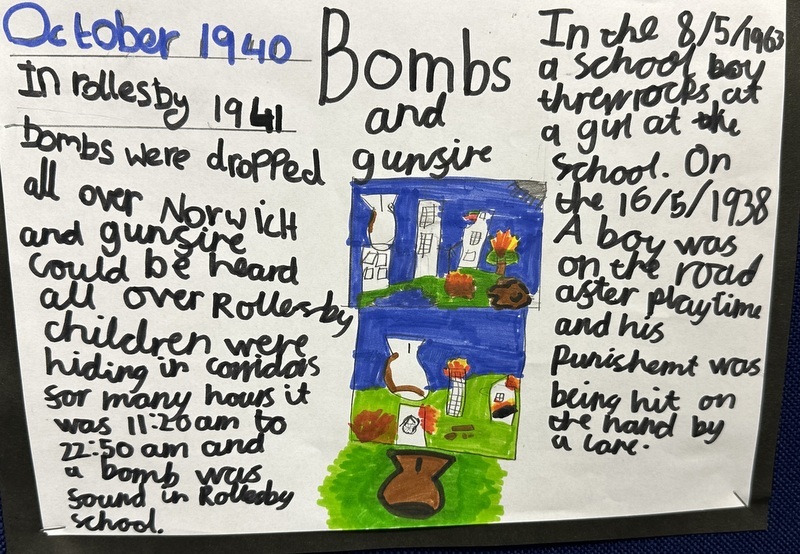 October 1940
In rollesby 1941
bombs were dropped
all over Norwich
and gunfire
could be heard
all over Rollesby
children were
hiding in corridors
for many hours it
was 11:20am to
22:50 am and
a bomb was
found in Rollesby
school.
Bombs
and
gunfire
In the 8/5/1963
a school boy
threw rocks at
a girl at the
school. On
the 16/5/1938
A boy was
on the road
after playtime
and his
punishemt was
being hit on
the hand by
a cane.